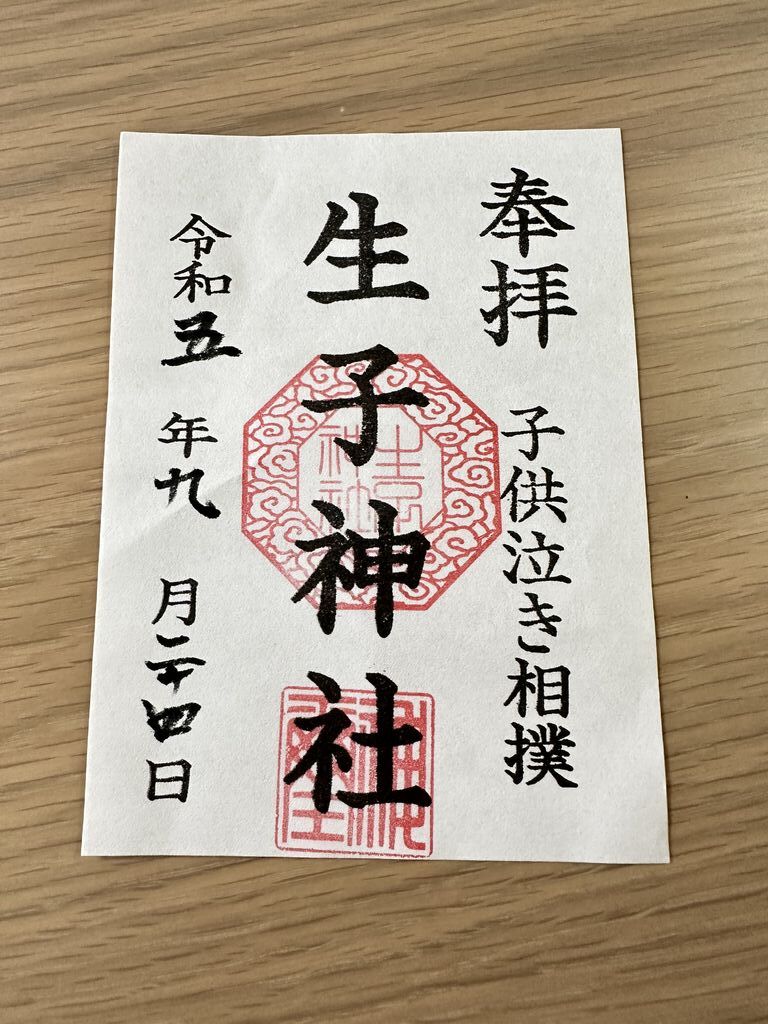 奉拝
子供泣き相撲
生子神社
令和五年九月二十四日
生子
神社